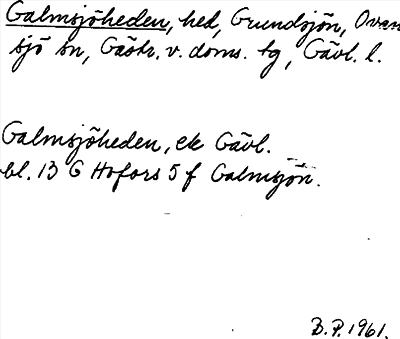 Galmsjöheden, hed, Grundsjön, Ovan
sjö sn, Gästr. v. doms. tg, Gävl. l.
Galmsjöheden, ek Gävl.
bl. 13 G Hofors 5 f Galmsjön.
B.P. 1961.